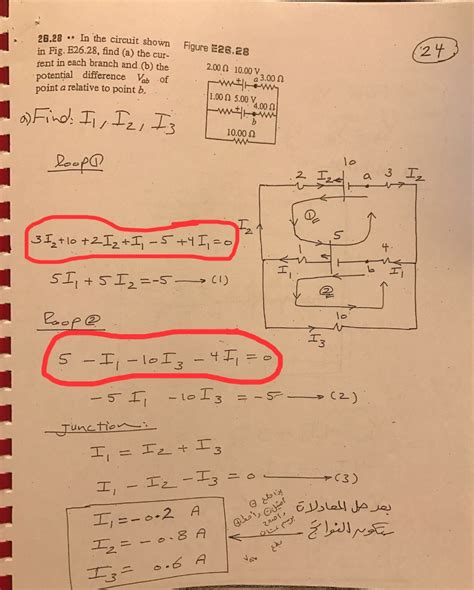 26.28 •• In the circuit shown
in Fig. E26.28, find (a) the cur-
rent in each branch and (b) the
potential difference Vab of
point a relative to point b.
Figure E26.28
2.00 Ω 10.00 V
a 3.00 Ω
1.00 Ω 5.00 V
4.00 Ω
b
10.00 Ω
24
a) Find: I₁, I₂, I₃
loop ①
10
2 I₂ a 3 I₂
I₂
①
5
1 4
I₁ b I₁
②
10
I₃
3I₂+10+2I₂+I₁-5+4I₁=0
5I₁+5I₂=-5 → (1)
loop ②
5 - I₁ - 10I₃ - 4I₁ = 0
-5I₁ - 10I₃ = -5 → (2)
Junction:
I₁ = I₂ + I₃
I₁ - I₂ - I₃ = 0 → (3)
I₁ = -0.2 A
I₂ = -0.8 A
I₃ = 0.6 A
بعد حل المعادلات
ستكون النواتج